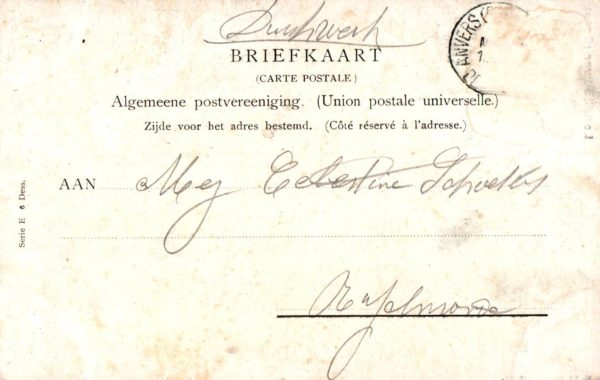 Drukwerk
BRIEFKAART
(CARTE POSTALE)
ANVERS
Algemeene postvereeniging. (Union postale universelle.)
Zijde voor het adres bestemd. (Côté réservé à l'adresse.)
AAN Mej Celestine
Rupelmonde
Serie E 6 Dess.